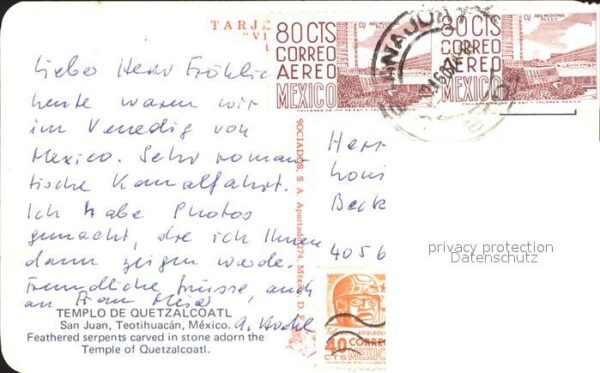 TARJE
"VI
Lieber Herr Fröhlic
heute waren wir
im Venedig von
Mexico. Sehr roman-
tische Kanalfahrt.
Ich habe Photos
gemacht, die ich Ihnen
dann zeigen werde.
Freundliche Grüsse, auch
an Frau
TEMPLO DE QUETZALCOATL
San Juan, Teotihuacán, México.
Feathered serpents carved in stone adorn the
Temple of Quetzalcoatl.
SOCIADOS, S. A. Apartado 274, México, D. F.
80 CTS
CORREO
AEREO
MEXICO
ARQ. MODERNA
CU
80 CTS
CORREO
AEREO
MEXICO
ARQ. MODERNA
CU
Herr
Loui
Beck
4056
privacy protection
Datenschutz
ARQUEOLO
40
CTS
CORREO
MEXICO